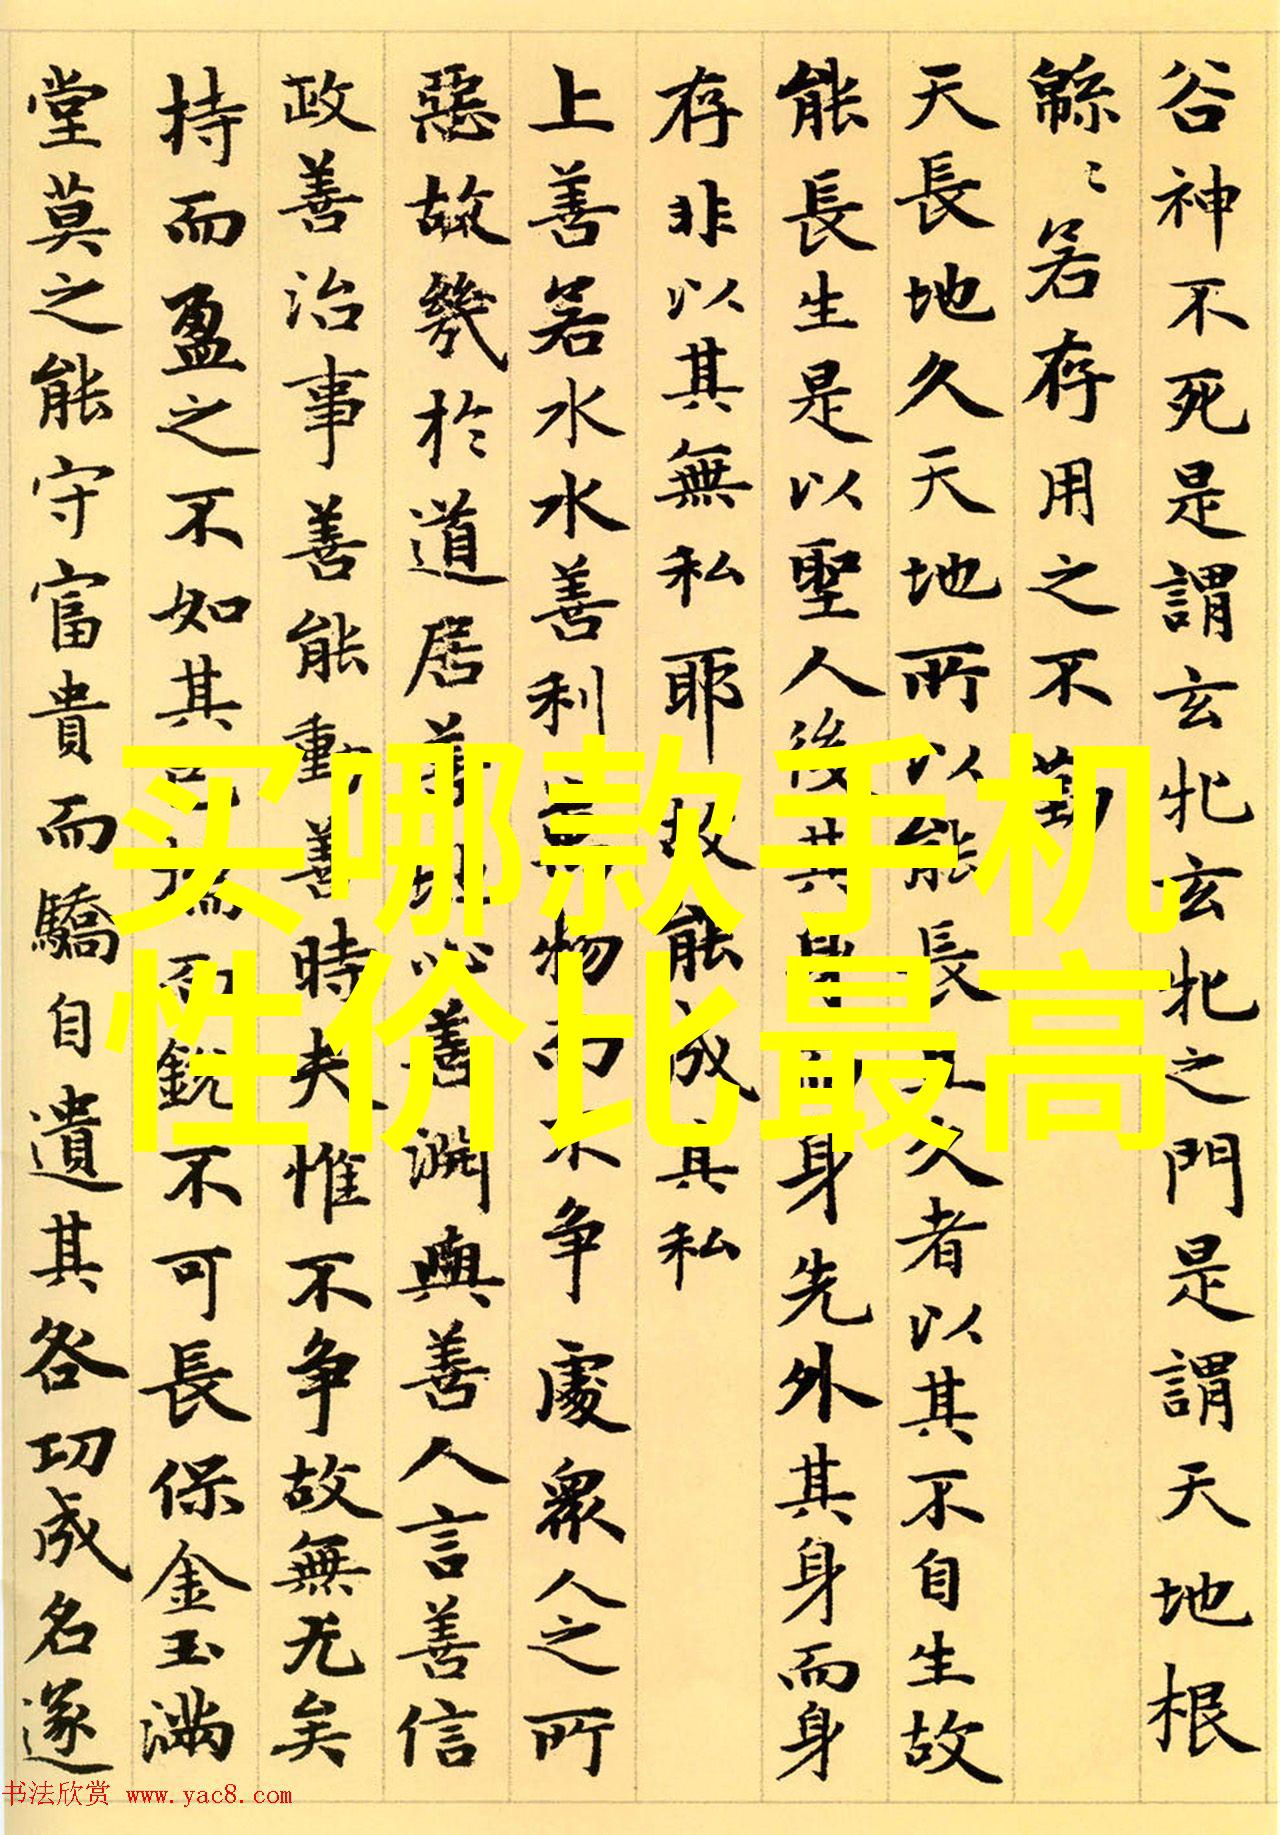 谷神不死是謂玄牝玄牝之門是謂天地根
緜〻若存用之不勤
天長地久天地所以能長且久者以其不自生故
能長生是以聖人後其身而身先外其身而身
存非以其無私耶故能成其私
上善若水水善利萬物而不争處衆人之所
惡故幾於道居善地心善淵與善人言善信
政善治事善能動善時夫惟不争故無尤矣
持而盈之不如其已揣而銳不可長保金玉滿
堂莫之能守富貴而驕自遺其咎功成名遂
买哪款手机
性价比最高
书法欣赏 www.yac8.com